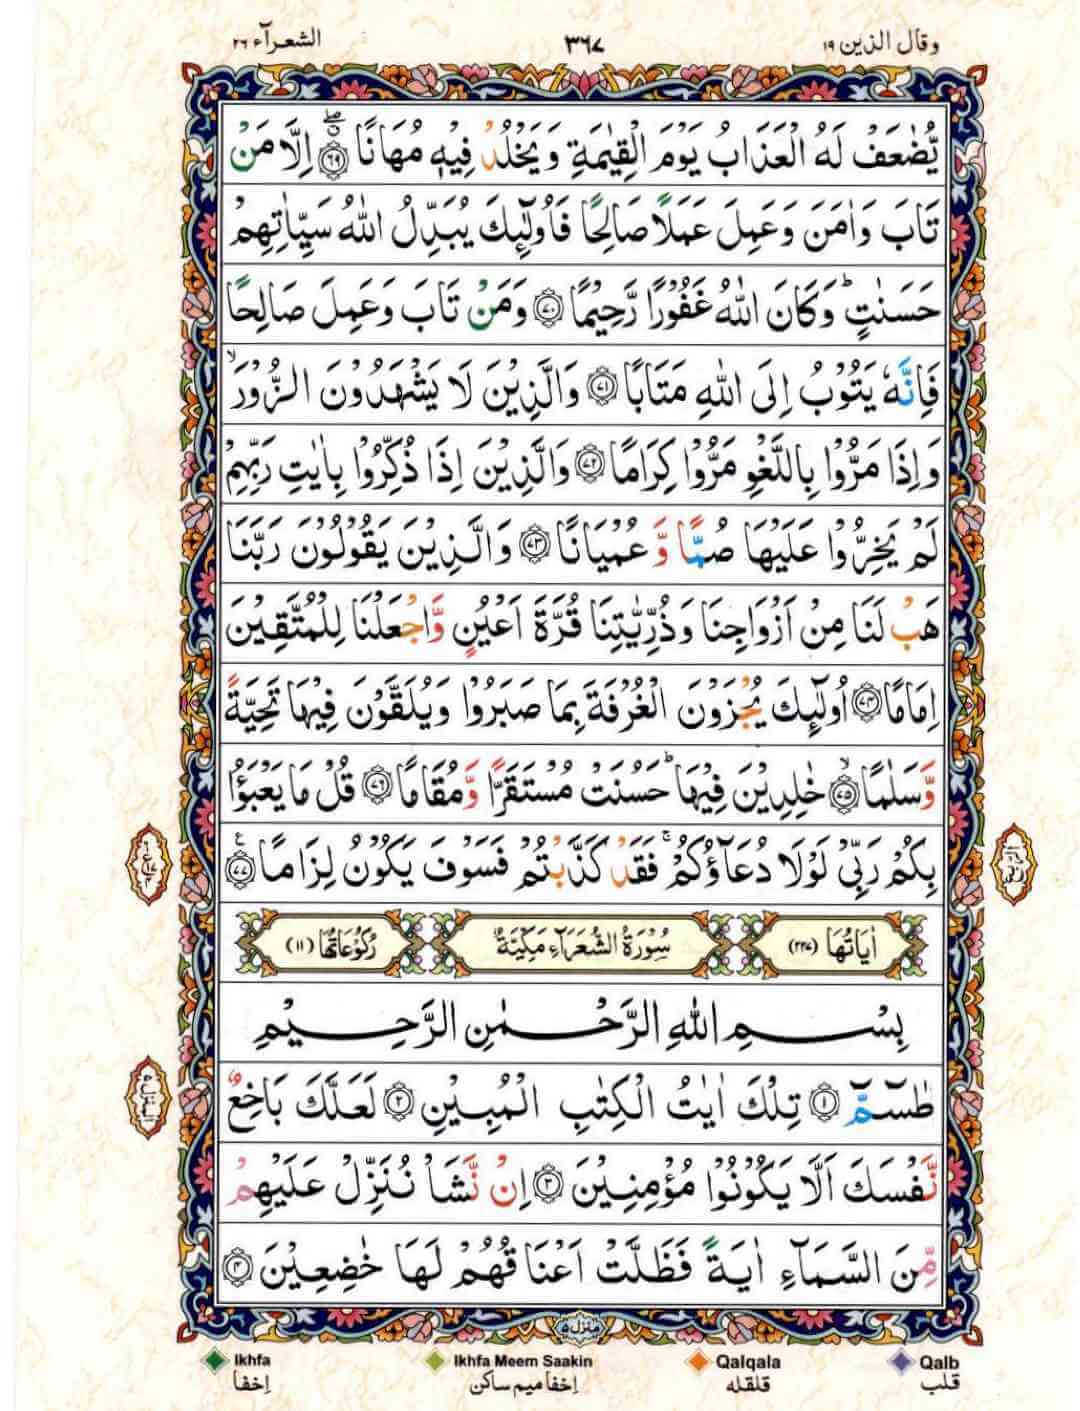 وقال الذين ١٩ ٣٦٧ الشعرآء ٢٦
يُّضٰعَفْ لَهُ الْعَذَابُ يَوْمَ الْقِيٰمَةِ وَيَخْلُدْ فِيْهٖ مُهَانًا ﴿٦٩﴾ اِلَّا مَنْ
تَابَ وَاٰمَنَ وَعَمِلَ عَمَلًا صَالِحًا فَاُولٰٓئِكَ يُبَدِّلُ اللّٰهُ سَيِّاٰتِهِمْ
حَسَنٰتٍ ؕ وَكَانَ اللّٰهُ غَفُوْرًا رَّحِيْمًا ﴿٧٠﴾ وَمَنْ تَابَ وَعَمِلَ صَالِحًا
فَاِنَّهٗ يَتُوْبُ اِلَى اللّٰهِ مَتَابًا ﴿٧١﴾ وَالَّذِيْنَ لَا يَشْهَدُوْنَ الزُّوْرَ ۙ
وَاِذَا مَرُّوْا بِاللَّغْوِ مَرُّوْا كِرَامًا ﴿٧٢﴾ وَالَّذِيْنَ اِذَا ذُكِّرُوْا بِاٰيٰتِ رَبِّهِمْ
لَمْ يَخِرُّوْا عَلَيْهَا صُمًّا وَّ عُمْيَانًا ﴿٧٣﴾ وَالَّذِيْنَ يَقُوْلُوْنَ رَبَّنَا
هَبْ لَنَا مِنْ اَزْوَاجِنَا وَذُرِّيّٰتِنَا قُرَّةَ اَعْيُنٍ وَّاجْعَلْنَا لِلْمُتَّقِيْنَ
اِمَامًا ﴿٧٤﴾ اُولٰٓئِكَ يُجْزَوْنَ الْغُرْفَةَ بِمَا صَبَرُوْا وَيُلَقَّوْنَ فِيْهَا تَحِيَّةً
وَّسَلٰمًا ۙ﴿٧٥﴾ خٰلِدِيْنَ فِيْهَا ؕ حَسُنَتْ مُسْتَقَرًّا وَّمُقَامًا ﴿٧٦﴾ قُلْ مَا يَعْبَؤُا
بِكُمْ رَبِّيْ لَوْلَا دُعَآؤُكُمْ ۚ فَقَدْ كَذَّبْتُمْ فَسَوْفَ يَكُوْنُ لِزَامًا ﴿٧٧﴾ ع
اٰيَاتُهَا (٢٢٧) سُوْرَةُ الشُّعَرَآءِ مَكِّيَّةٌ رُكُوْعَاتُهَا (١١)
بِسْمِ اللّٰهِ الرَّحْمٰنِ الرَّحِيْمِ
طٰسٓمّٓ ﴿١﴾ تِلْكَ اٰيٰتُ الْكِتٰبِ الْمُبِيْنِ ﴿٢﴾ لَعَلَّكَ بَاخِعٌ
نَّفْسَكَ اَلَّا يَكُوْنُوْا مُؤْمِنِيْنَ ﴿٣﴾ اِنْ نَّشَاْ نُنَزِّلْ عَلَيْهِمْ
مِّنَ السَّمَآءِ اٰيَةً فَظَلَّتْ اَعْنَاقُهُمْ لَهَا خٰضِعِيْنَ ﴿٤﴾
منزل ٥
Ikhfa Ikhfa Meem Saakin Qalqala Qalb
اِخفا اِخفا میم ساکن قلقله قلب